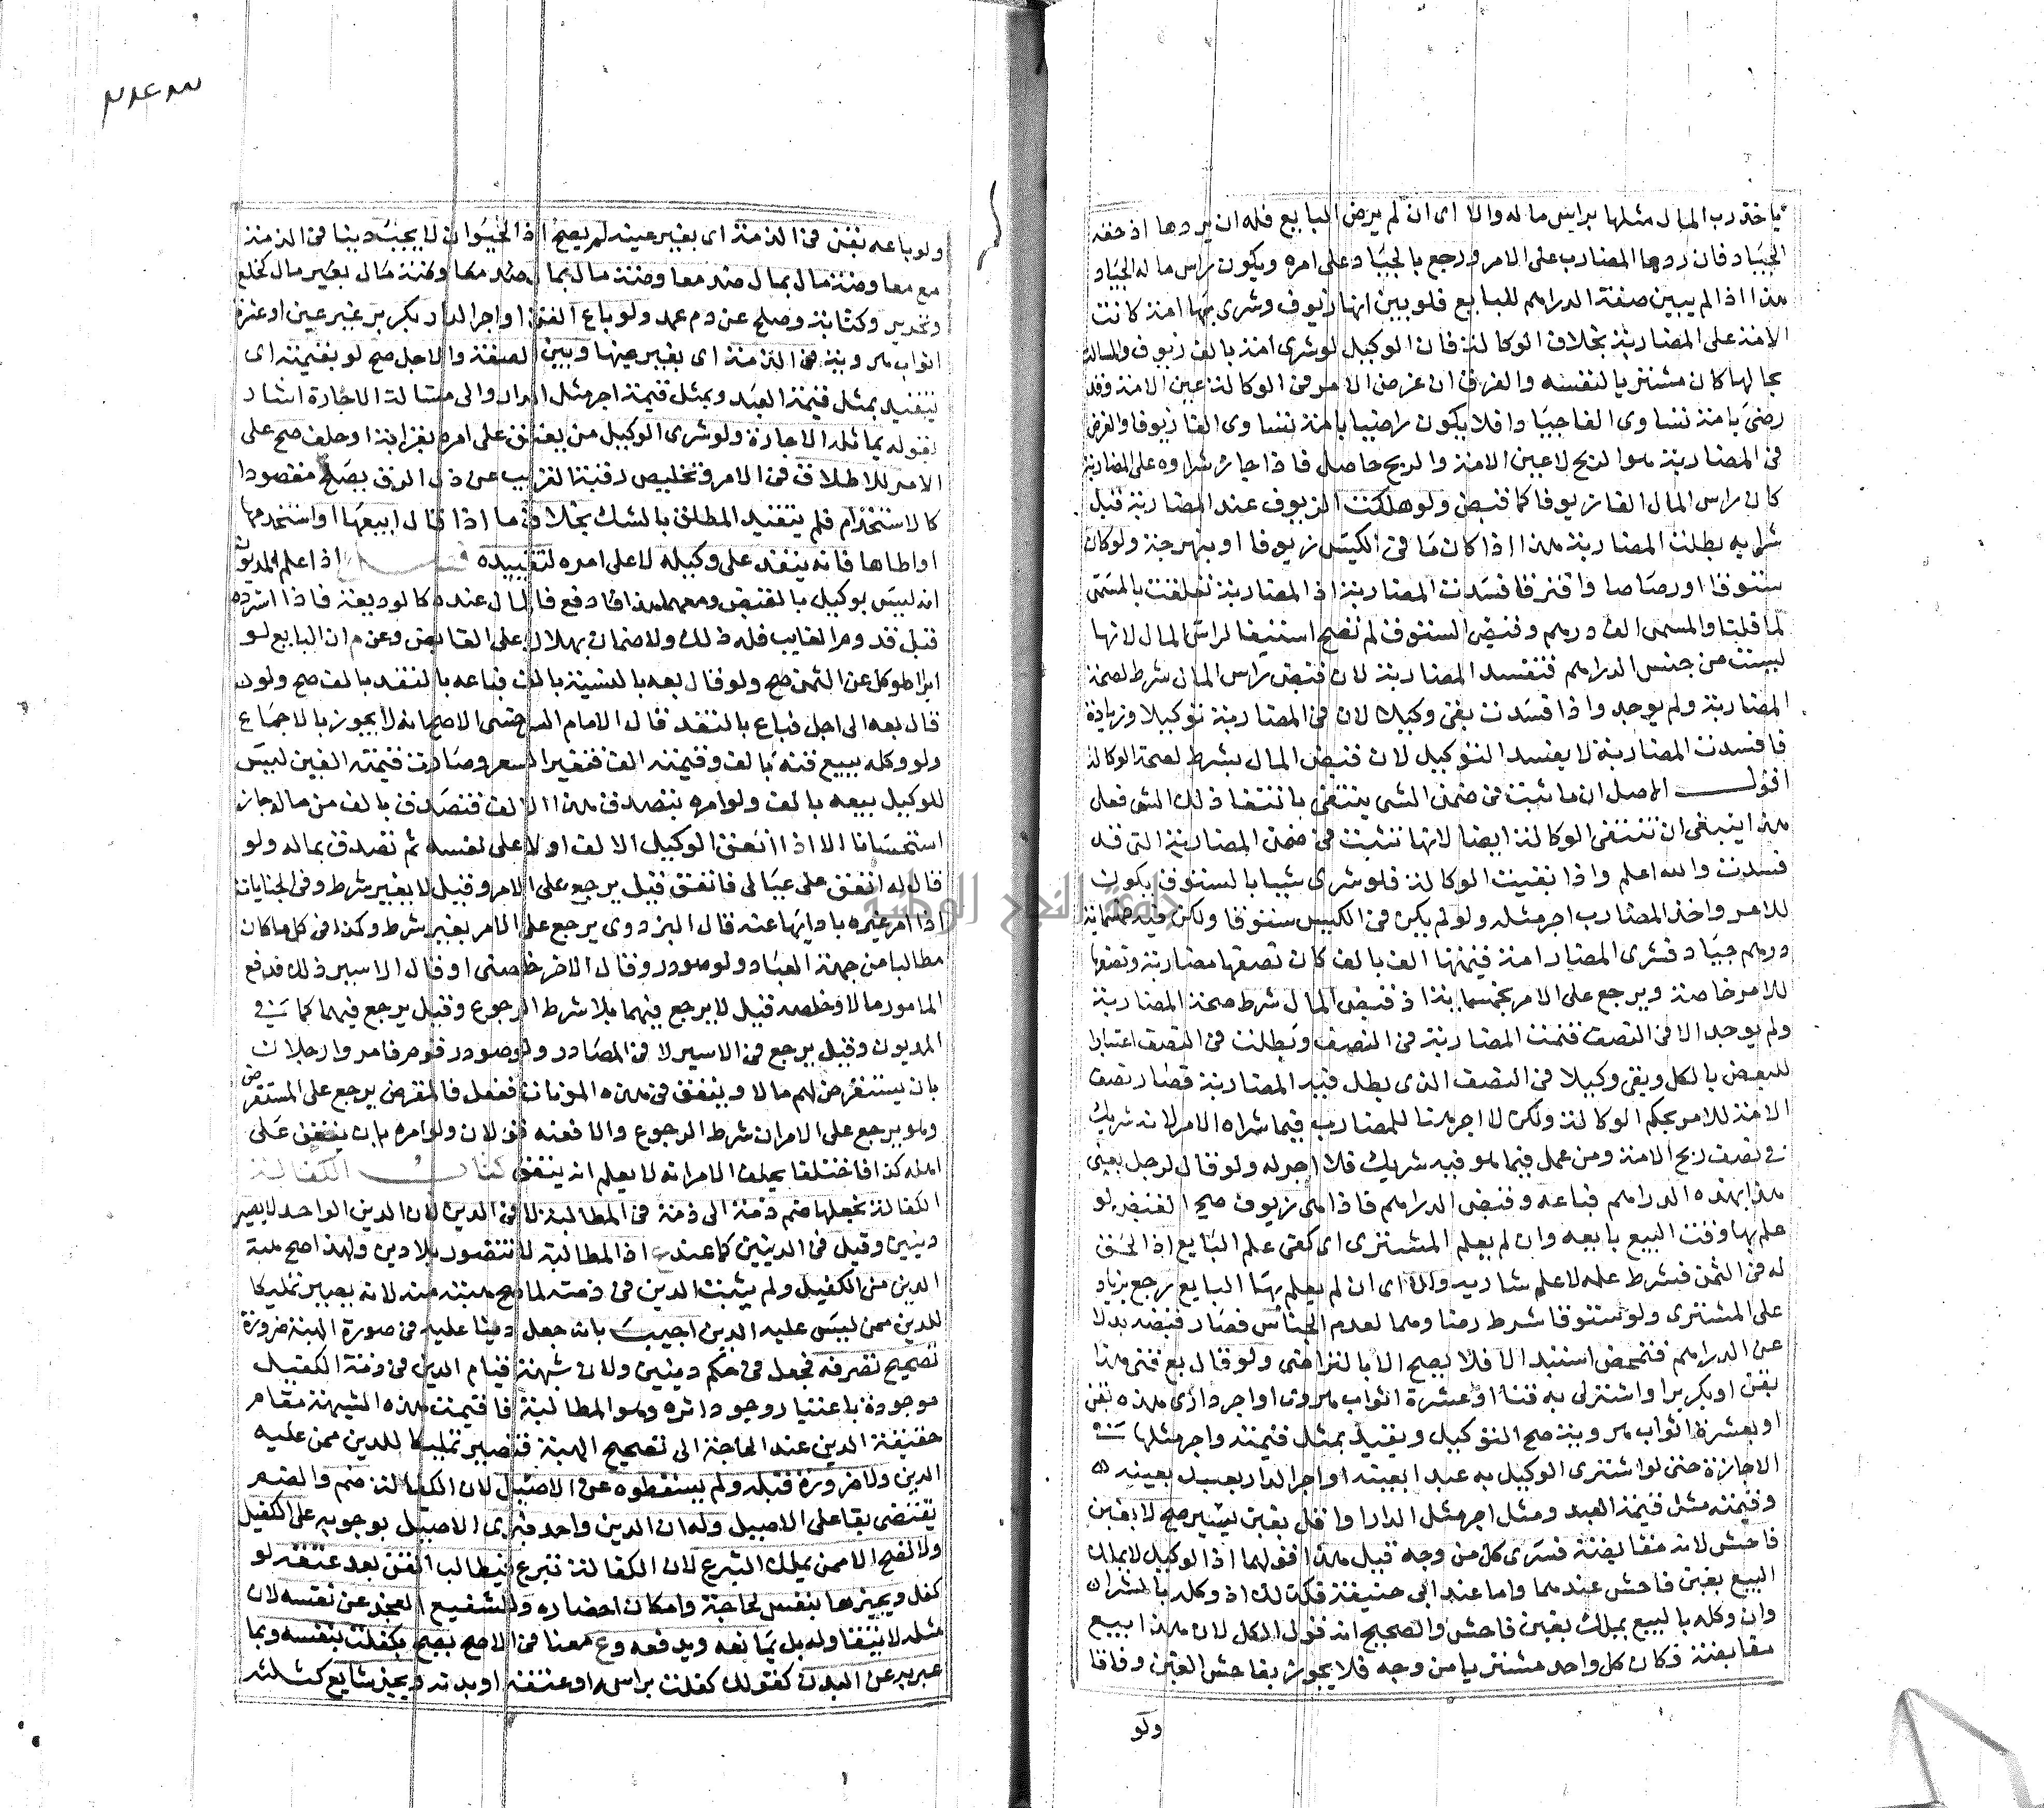 ياخذ رب المال مثلها براس ماله والا اى ان لم يرض البايع فله ان يردها اذ حقه
الجياد فان ردها المضارب على الامر ورجع بالجياد على امره ويكون راس ماله الجياد
هذا اذا لم يبين صفة الدراهم للبايع فلو بين انها زيوف وشرى بها امة كانت
الامة على المضاربة بخلاف الوكالة فان الوكيل لو شرى امة بالف زيوف والمسالة
بحالها كان مشتريا لنفسه والفرق ان غرض الامر فى الوكالة عين الامة وقد
رضى بامة تساوى الفا جيادا فلا يكون راضيا بامة تساوى الفا زيوفا والغرض
فى المضاربة هو الربح لا عين الامة والربح حاصل فاذا جاز شراوه على المضاربة
كان راس المال الفا زيوفا كما قبض ولو هلكت الزيوف عند المضاربة قبل
شرايه بطلت المضاربة هذا اذا كان ما فى الكيس زيوفا او بنهرجة ولو كان
ستوقا او رصاصا وافترقا فسدت المضاربة اذ المضاربة تعلقت بالمسمى
لما قلنا والمسمى الف درهم وقبض الستوق لم تصح استيفا لراس المال لانها
ليست من جنس الدراهم فتفسد المضاربة لان قبض راس المال شرط لصحة
المضاربة ولم يوجد واذا فسدت بقى وكيلا لان فى المضاربة توكيلا وزيادة
فافسدت المضاربة لا يفسد التوكيل لان قبض المال يشرط لصحة الوكالة
اقول الاصل ان ما ثبت فى ضمن الشى ينتفى بانتفا ذلك الشى فعلى
هذا ينبغى ان تنتفى الوكالة ايضا لانها تثبت فى ضمن المضاربة التى قد
فسدت والله اعلم واذا بقيت الوكالة فلو شرى شييا بالستوق يكون
للامر واخذ المضارب اجر مثله ولو لم يكن فى الكيس ستوقا ولكن فيه خمسماية
درهم جياد فشرى المضار امة قيمتها الف بالف كان نصفها مضاربة ونصفها
للامر خاصة ويرجع على الامر بخمسماية اذ قبض المال شرط صحة المضاربة
ولم يوجد الا فى النصف فتمت المضاربة فى النصف وبطلت فى النصف اعتبارا
للبعض بالكل وبقى وكيلا فى النصف الذى بطل فيه المضاربة فصار نصف
الامة للامر بحكم الوكالة ولكن لا اجر هنا للمضارب فيما شراه الامر لانه شريك
فى نصف ربح الامة ومن عمل فيما هو فيه شريك فلا اجر له ولو قال لرجل بعنى
هذا بهذه الدراهم فباعه وقبض الدراهم فاذا هى زيوف صح القبض لو
علم بها وقت البيع بايعه وان لم يعلم المشترى اى كفى علم البايع اذ الحق
له فى الثمن فشرط علمه لا علم شاريه والا اى ان لم يعلم بها البايع رجع بجياد
على المشترى ولو ستوقا شرط رضا وهما لعدم الجناس فصار قبضه بدلا
عن الدراهم فتمحض استبدالا فلا يصح الا بالتراضى ولو قال بع قنى هذا
بقن او بكر برا واشترلى به قنا او عشرة اثواب هروى او اجر دارى هذه بقن
او بعشرة اثواب هروية صح التوكيل ويقيد بمثل قيمته واجر مثلها
الاجارة حتى لو اشترى الوكيل به عبدا بعينه او اجر الدار بعبد بعينه
وقيمته مثل قيمة العبد ومثل اجر مثل الدار او اقل بغبن يسير صح لا بغبن
فاحش لانه مقايضة فشرى كل من وجه قيل هذا قولهما اذ الوكيل لا يملك
البيع بغبن فاحش عندهما واما عند ابى حنيفة فكذلك اذ وكله بالشرا
وان وكله بالبيع يملك بغبن فاحش والصحيح انه قول الكل لان هذا بيع
مقايضة فكان كل واحد مشتريا من وجه فلا يجوز بفاحش الغبن وفاقا
ولو
ولو باعه بقن فى الذمة اى بغير عينه لم يصح اذ الحيوان لا يجب دينا فى الذمة
مع معاوضة مال بمال ضد معاوضة مال بمال ضد معاوضة مال بغير مال كخلع
وتحرير وكتابة وصلح عن دم عمد ولو باع القن او اجر الدار بكر بر غير عين او عشرة
اثواب هروية فى الذمة اى بغير عينها وبين الصفة والاجل صح لو بقيمته اى
يتقيد بمثل قيمة العبد وبمثل قيمة اجر مثل الدار والى مسالة الاجارة اشار
بقوله بماثله الاجارة ولو شرى الوكيل من يعتق على امره بقرابة او حلف صح على
الامر للاطلاق فى الامر وتخليص رقبة القريب عن ذل الرق يصلح مقصودا
كالاستخدام فلم يتقيد المطلق بالشك بخلاف ما اذا قال ابيعها او استخدمها
او اطاها فانه ينفذ على وكيله لا على امره لتقييده فصل اذا علم المديون
انه ليس بوكيل بالقبض ومع هذا دفع فالمال عنده كالوديعة فاذا استرده
قبل قدوم الغايب فله ذلك ولا ضمان بهلاك على القابض وعن م ان البايع لو
ابرا موكل عن الثمن صح ولو قال بعه بالنسية بالف فباعه بالنقد بالف صح ولو
قال بعه الى اجل فباع بالنقد قال الامام السرخسى الاصح انه لا يجوز بالاجماع
ولو وكله ببيع قنه بالف وقيمته الف فتغير السعر وصارت قيمته الفين ليس
للوكيل بيعه بالف ولو امره بتصدق هذا الالف فتصدق بالف من ماله جاز
استحسانا الا اذا انفق الوكيل الالف اولا على نفسه ثم تصدق بماله ولو
قال له انفق على عيالى فانفق قيل يرجع على الامر وقيل لا بغير شرط وفى الجنايات
اذا امر غيره بادايها عنه قال البزدوى يرجع على الامر بغير شرط وكذا فى كل ما كان
مطالبا من جهة العباد ولو صودر وقال الاخر خلصنى او قال الاسير ذلك فدفع
المامور مالا وخلصه قيل لا يرجع فيهما بلا شرط الرجوع وقيل يرجع فيهما كما فى
المديون وقيل يرجع فى الاسير لا فى المصادر ولو صودر قوم فامروا رجلا
بان يستقرض لهم مالا وينفق فى هذه المونات ففعل فالمقرض يرجع على المستقرض
وهو يرجع على الامر ان شرط الرجوع والا فعنه قولان ولو امره بان ينفق على
اهله كذا فاختلفا يحلف الامر انه لا يعلم انه ينفق كتاب الكفالة
الكفالة بجعلها ضم ذمة الى ذمة فى المطالبة لا فى الدين لان الدين الواحد لا يصير
دينين وقيل فى الدينين كما عند اذ المطالبة لا تتصور بلا دين ولهذا صح هبة
الدين من الكفيل ولم يثبت الدين فى ذمته لما صح هبته منه لانه يصير تمليكا
للدين ممن ليس عليه الدين اجيب بانه جعل دينا عليه فى صورة الهبة ضرورة
تصحيح تصرفه فجعل فى حكم دينين ولان شبهة قيام الدين فى ذمة الكفيل
موجودة باعتبار وجود اثره وهو المطالبة فاقيمت هذه الشبهة مقام
حقيقة الدين عند الحاجة الى تصحيح الهبة فتصير تمليكا للدين ممن عليه
الدين ولا ضرورة قبله ولم يسقطوه عن الاصيل لان الكفالة ضم والضم
يقتضى بقا على الاصيل وله ان الدين واحد فبرى الاصيل بوجوبه على الكفيل
ولا تصح الا ممن يملك التبرع لان الكفالة تبرع فيطالب القن بعد عتقه لو
كفل ويجيزها بنفس لحاجة وامكان احضاره والشفيع العجز عن نفسه لان
مثله لا ينقاد له بل يمانعه ويدفعه وع معنا فى الاصح يصح بكفلت بنفسه وبما
عبر به عن البدن كقولك كفلت براسه او عتقه او بدنه وبجز شايع كثلثه